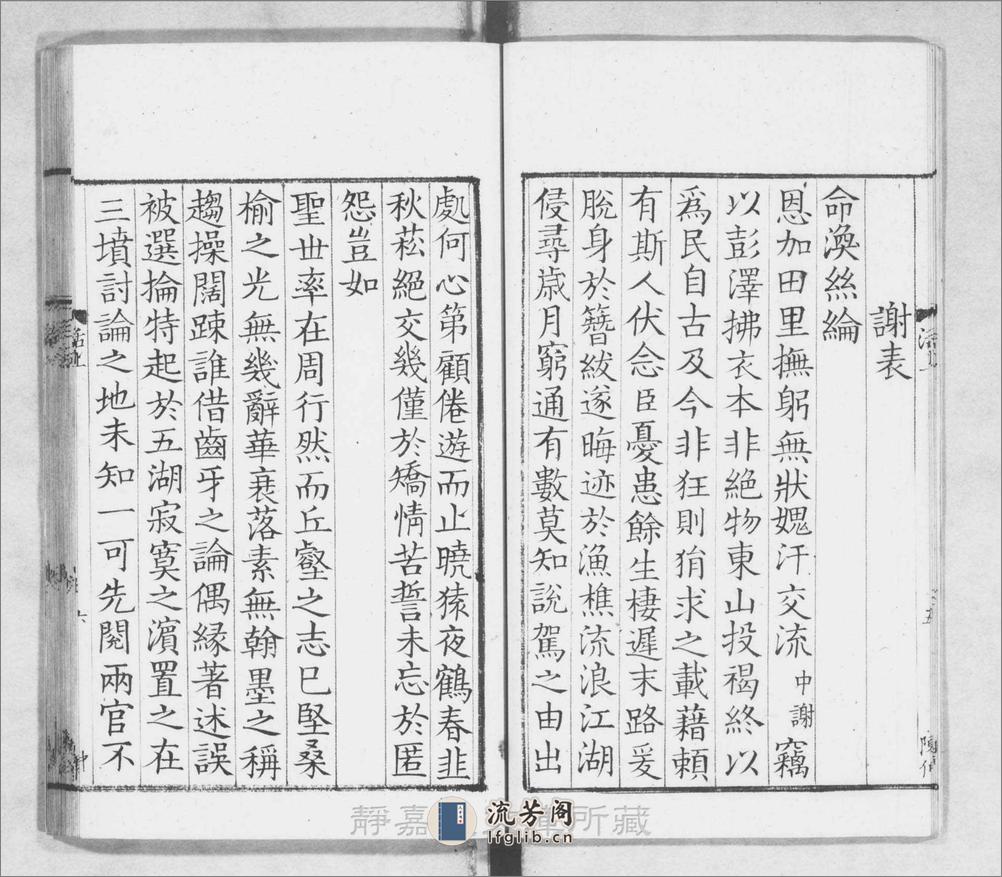 謝表
命渙絲綸
恩加田里撫躬無狀媿汗交流中謝竊
以彭澤拂衣本非絕物東山投褐終以
爲民自古及今非狂則狷求之載藉賴
有斯人伏念臣憂患餘生棲遲末路爰
脫身於簪紱遂晦迹於漁樵流浪江湖
侵尋歲月窮通有數莫知說駕之由出
處何心第顧倦遊而止曉猿夜鶴春韭
秋菘絕交幾僅於矯情苦誓未忘於匿
怨豈如
聖世率在周行然而丘壑之志已堅桑
榆之光無幾辭華衰落素無翰墨之稱
趨操闊踈誰借齒牙之論偶緣著述誤
被選掄特起於五湖寂寞之濵置之在
三墳討論之地未知一可先閱兩官不
六
靜嘉
所藏
流芳阁
lfglib.cn